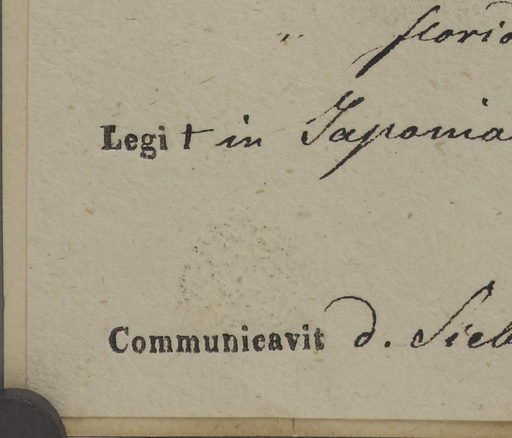 florid
Legit in Japonia
Communicavit d. Sieb